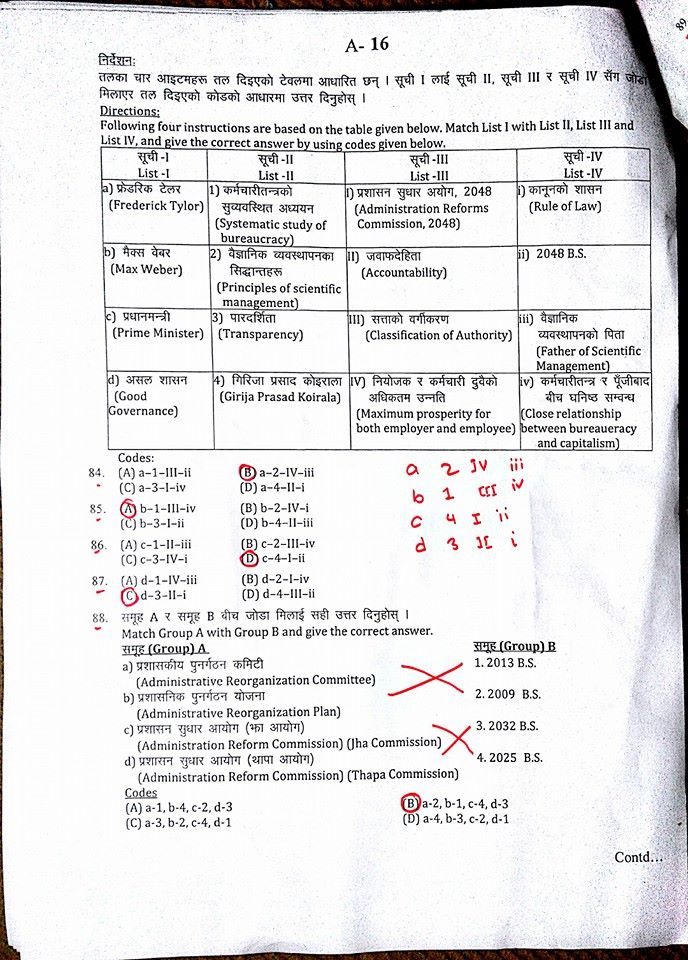 A- 16
निर्देशन:
तलका चार आइटमहरू तल दिइएको टेवलमा आधारित छन् । सूची I लाई सूची II, सूची III र सूची IV सँग जोडा
मिलाएर तल दिइएको कोडको आधारमा उत्तर दिनुहोस् ।
Directions:
Following four instructions are based on the table given below. Match List I with List II, List III and
List IV, and give the correct answer by using codes given below.
सूची -I
List -I
सूची -II
List -II
सूची -III
List -III
सूची -IV
List -IV
a) फ्रेडरिक टेलर
(Frederick Tylor)
1) कर्मचारीतन्त्रको
सुव्यवस्थित अध्ययन
(Systematic study of
bureaucracy)
I) प्रशासन सुधार अयोग, 2048
(Administration Reforms
Commission, 2048)
i) कानूनको शासन
(Rule of Law)
b) मैक्स वेबर
(Max Weber)
2) वैज्ञानिक व्यवस्थापनका
सिद्धान्तहरू
(Principles of scientific
management)
II) जवाफदेहिता
(Accountability)
ii) 2048 B.S.
c) प्रधानमन्त्री
(Prime Minister)
3) पारदर्शिता
(Transparency)
III) सत्ताको वर्गीकरण
(Classification of Authority)
iii) वैज्ञानिक
व्यवस्थापनको पिता
(Father of Scientific
Management)
d) असल शासन
(Good
Governance)
4) गिरिजा प्रसाद कोइराला
(Girija Prasad Koirala)
IV) नियोजक र कर्मचारी दुवैको
अधिकतम उन्नति
(Maximum prosperity for
both employer and employee)
iv) कर्मचारीतन्त्र र पूँजीबाद
बीच घनिष्ठ सम्वन्ध
(Close relationship
between bureaueracy
and capitalism)
Codes:
84. (A) a–1–III–ii (B) a–2–IV–iii
(C) a–3–I–iv (D) a–4–II–i
85. (A) b–1–III–iv (B) b–2–IV–i
(C) b–3–I–ii (D) b–4–II–iii
86. (A) c–1–II–iii (B) c–2–III–iv
(C) c–3–IV–i (D) c–4–I–ii
87. (A) d–1–IV–iii (B) d–2–I–iv
(C) d–3–II–i (D) d–4–III–ii
a 2 IV iii
b 1 III iv
c 4 I ii
d 3 II i
88. समूह A र समूह B बीच जोडा मिलाई सही उत्तर दिनुहोस् ।
Match Group A with Group B and give the correct answer.
समूह (Group) A
समूह (Group) B
a) प्रशासकीय पुनर्गठन कमिटी
(Administrative Reorganization Committee)
1. 2013 B.S.
b) प्रशासनिक पुनर्गठन योजना
(Administrative Reorganization Plan)
2. 2009 B.S.
c) प्रशासन सुधार आयोग (झा आयोग)
(Administration Reform Commission) (Jha Commission)
3. 2032 B.S.
d) प्रशासन सुधार आयोग (थापा आयोग)
(Administration Reform Commission) (Thapa Commission)
4. 2025 B.S.
Codes
(A) a-1, b-4, c-2, d-3 (B) a-2, b-1, c-4, d-3
(C) a-3, b-2, c-4, d-1 (D) a-4, b-3, c-2, d-1
Contd...
89